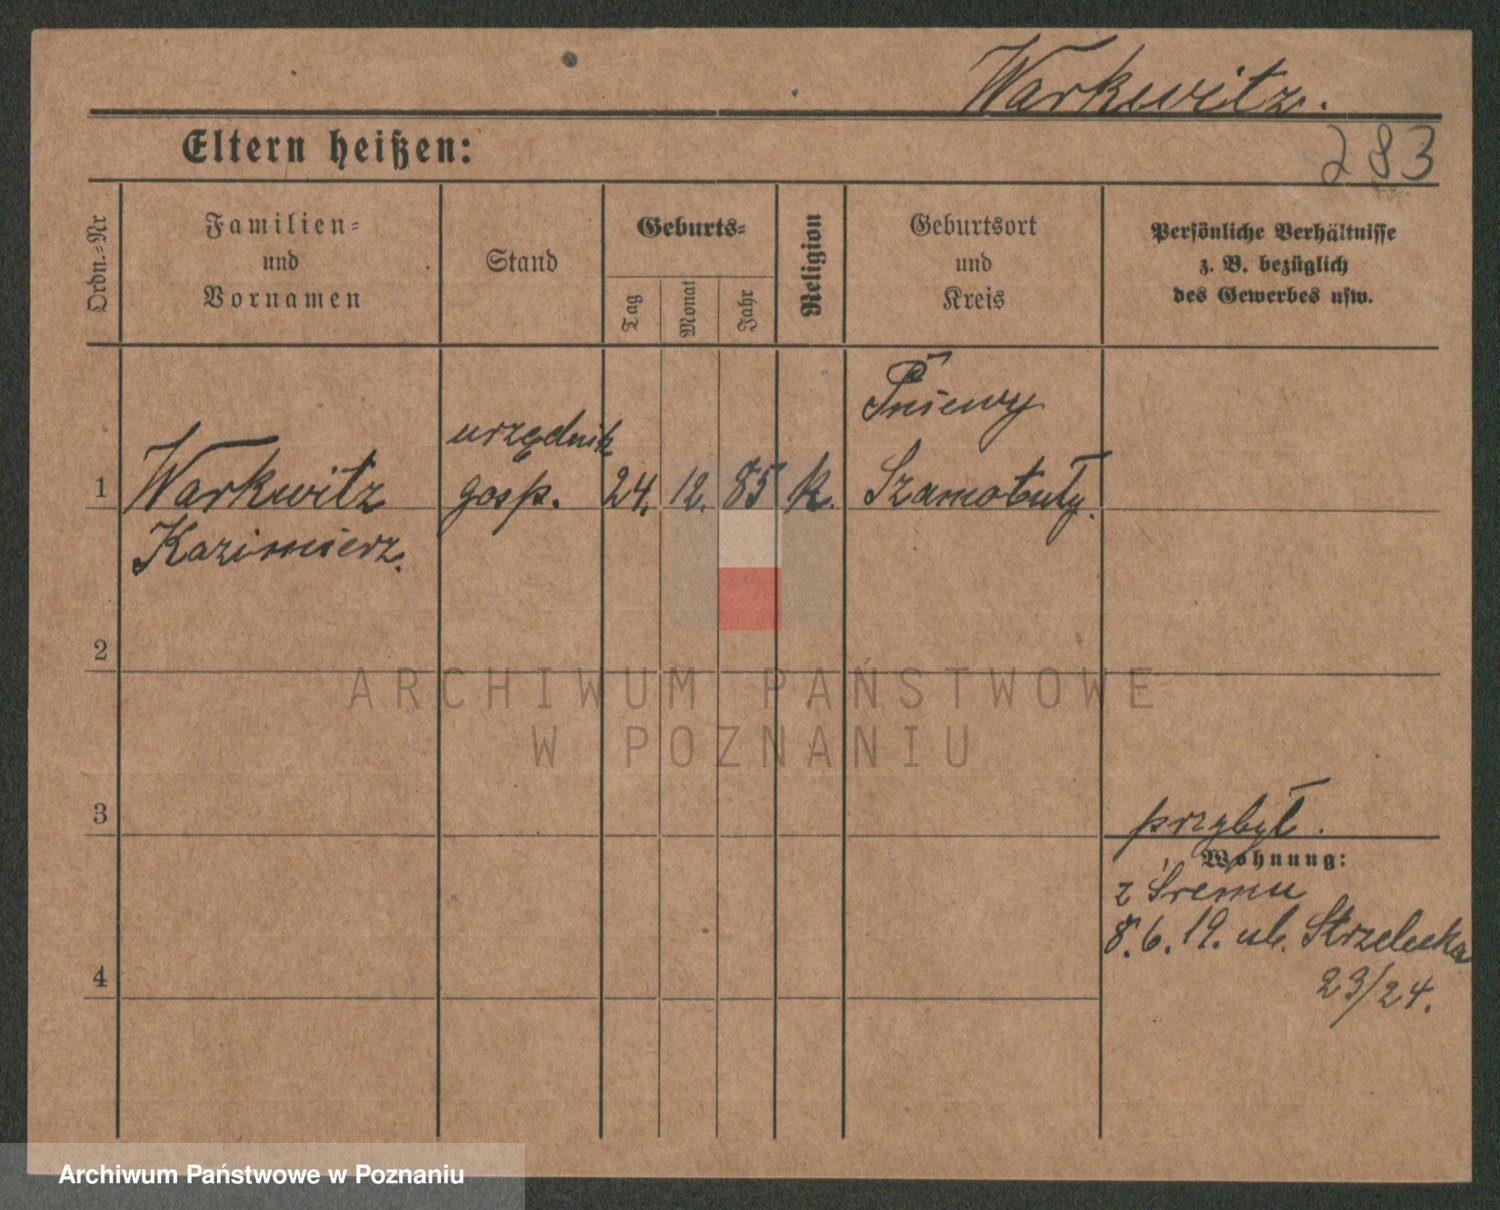 Warkwitz.
283
Eltern heißen:
Ordn.-Nr
Familien-
und
Vornamen
Stand
Geburts-
Tag
Monat
Jahr
Religion
Geburtsort
und
Kreis
Persönliche Verhältnisse
z. B. bezüglich
des Gewerbes usw.
1
Warkwitz
Kazimierz.
urzędnik
gosp.
24.
12.
85
k.
Pniewy
Szamotuły.
2
3
4
przybył.
Wohnung:
z Śremu
8.6.19. ul. Strzelecka
23/24.
ARCHIWUM PAŃSTWOWE
W POZNANIU
Archiwum Państwowe w Poznaniu